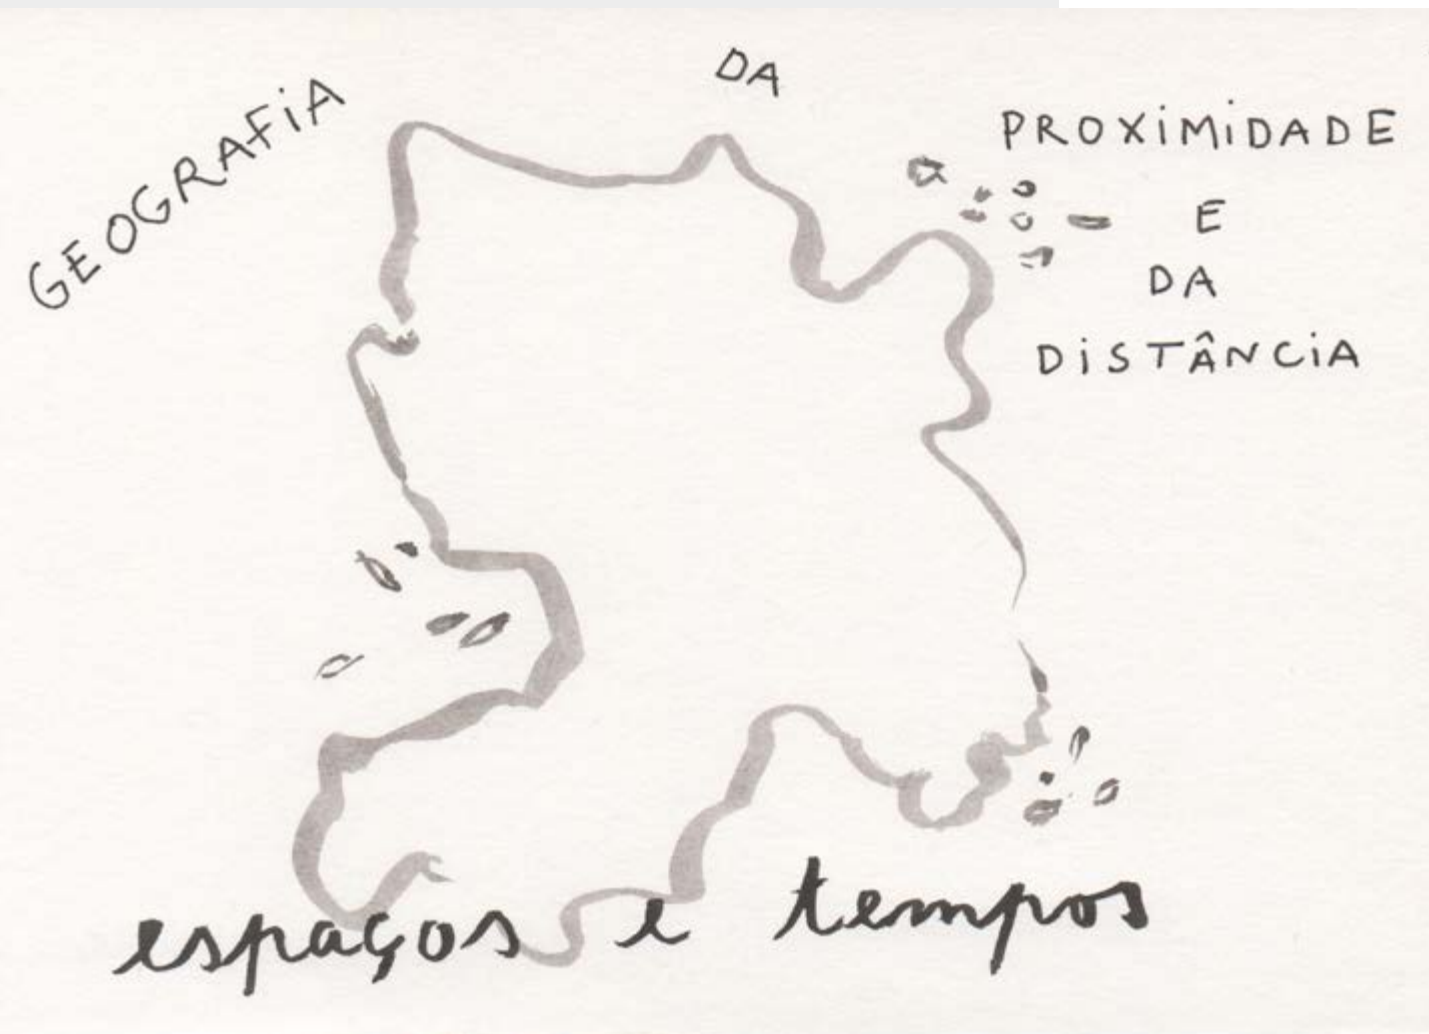 GEOGRAFiA
DA
PROXiMiDADE
E
DA
DiSTÂNCiA
espaços e tempos